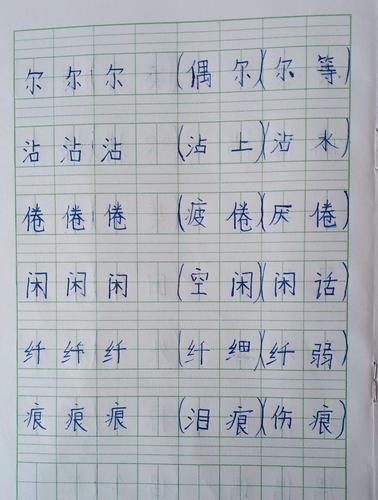 尔 尔 尔 (偶尔)(尔等)
沾 沾 沾 (沾上)(沾水)
倦 倦 倦 (疲倦)(厌倦)
闲 闲 闲 (空闲)(闲话)
纤 纤 纤 (纤细)(纤弱)
痕 痕 痕 (泪痕)(伤痕)